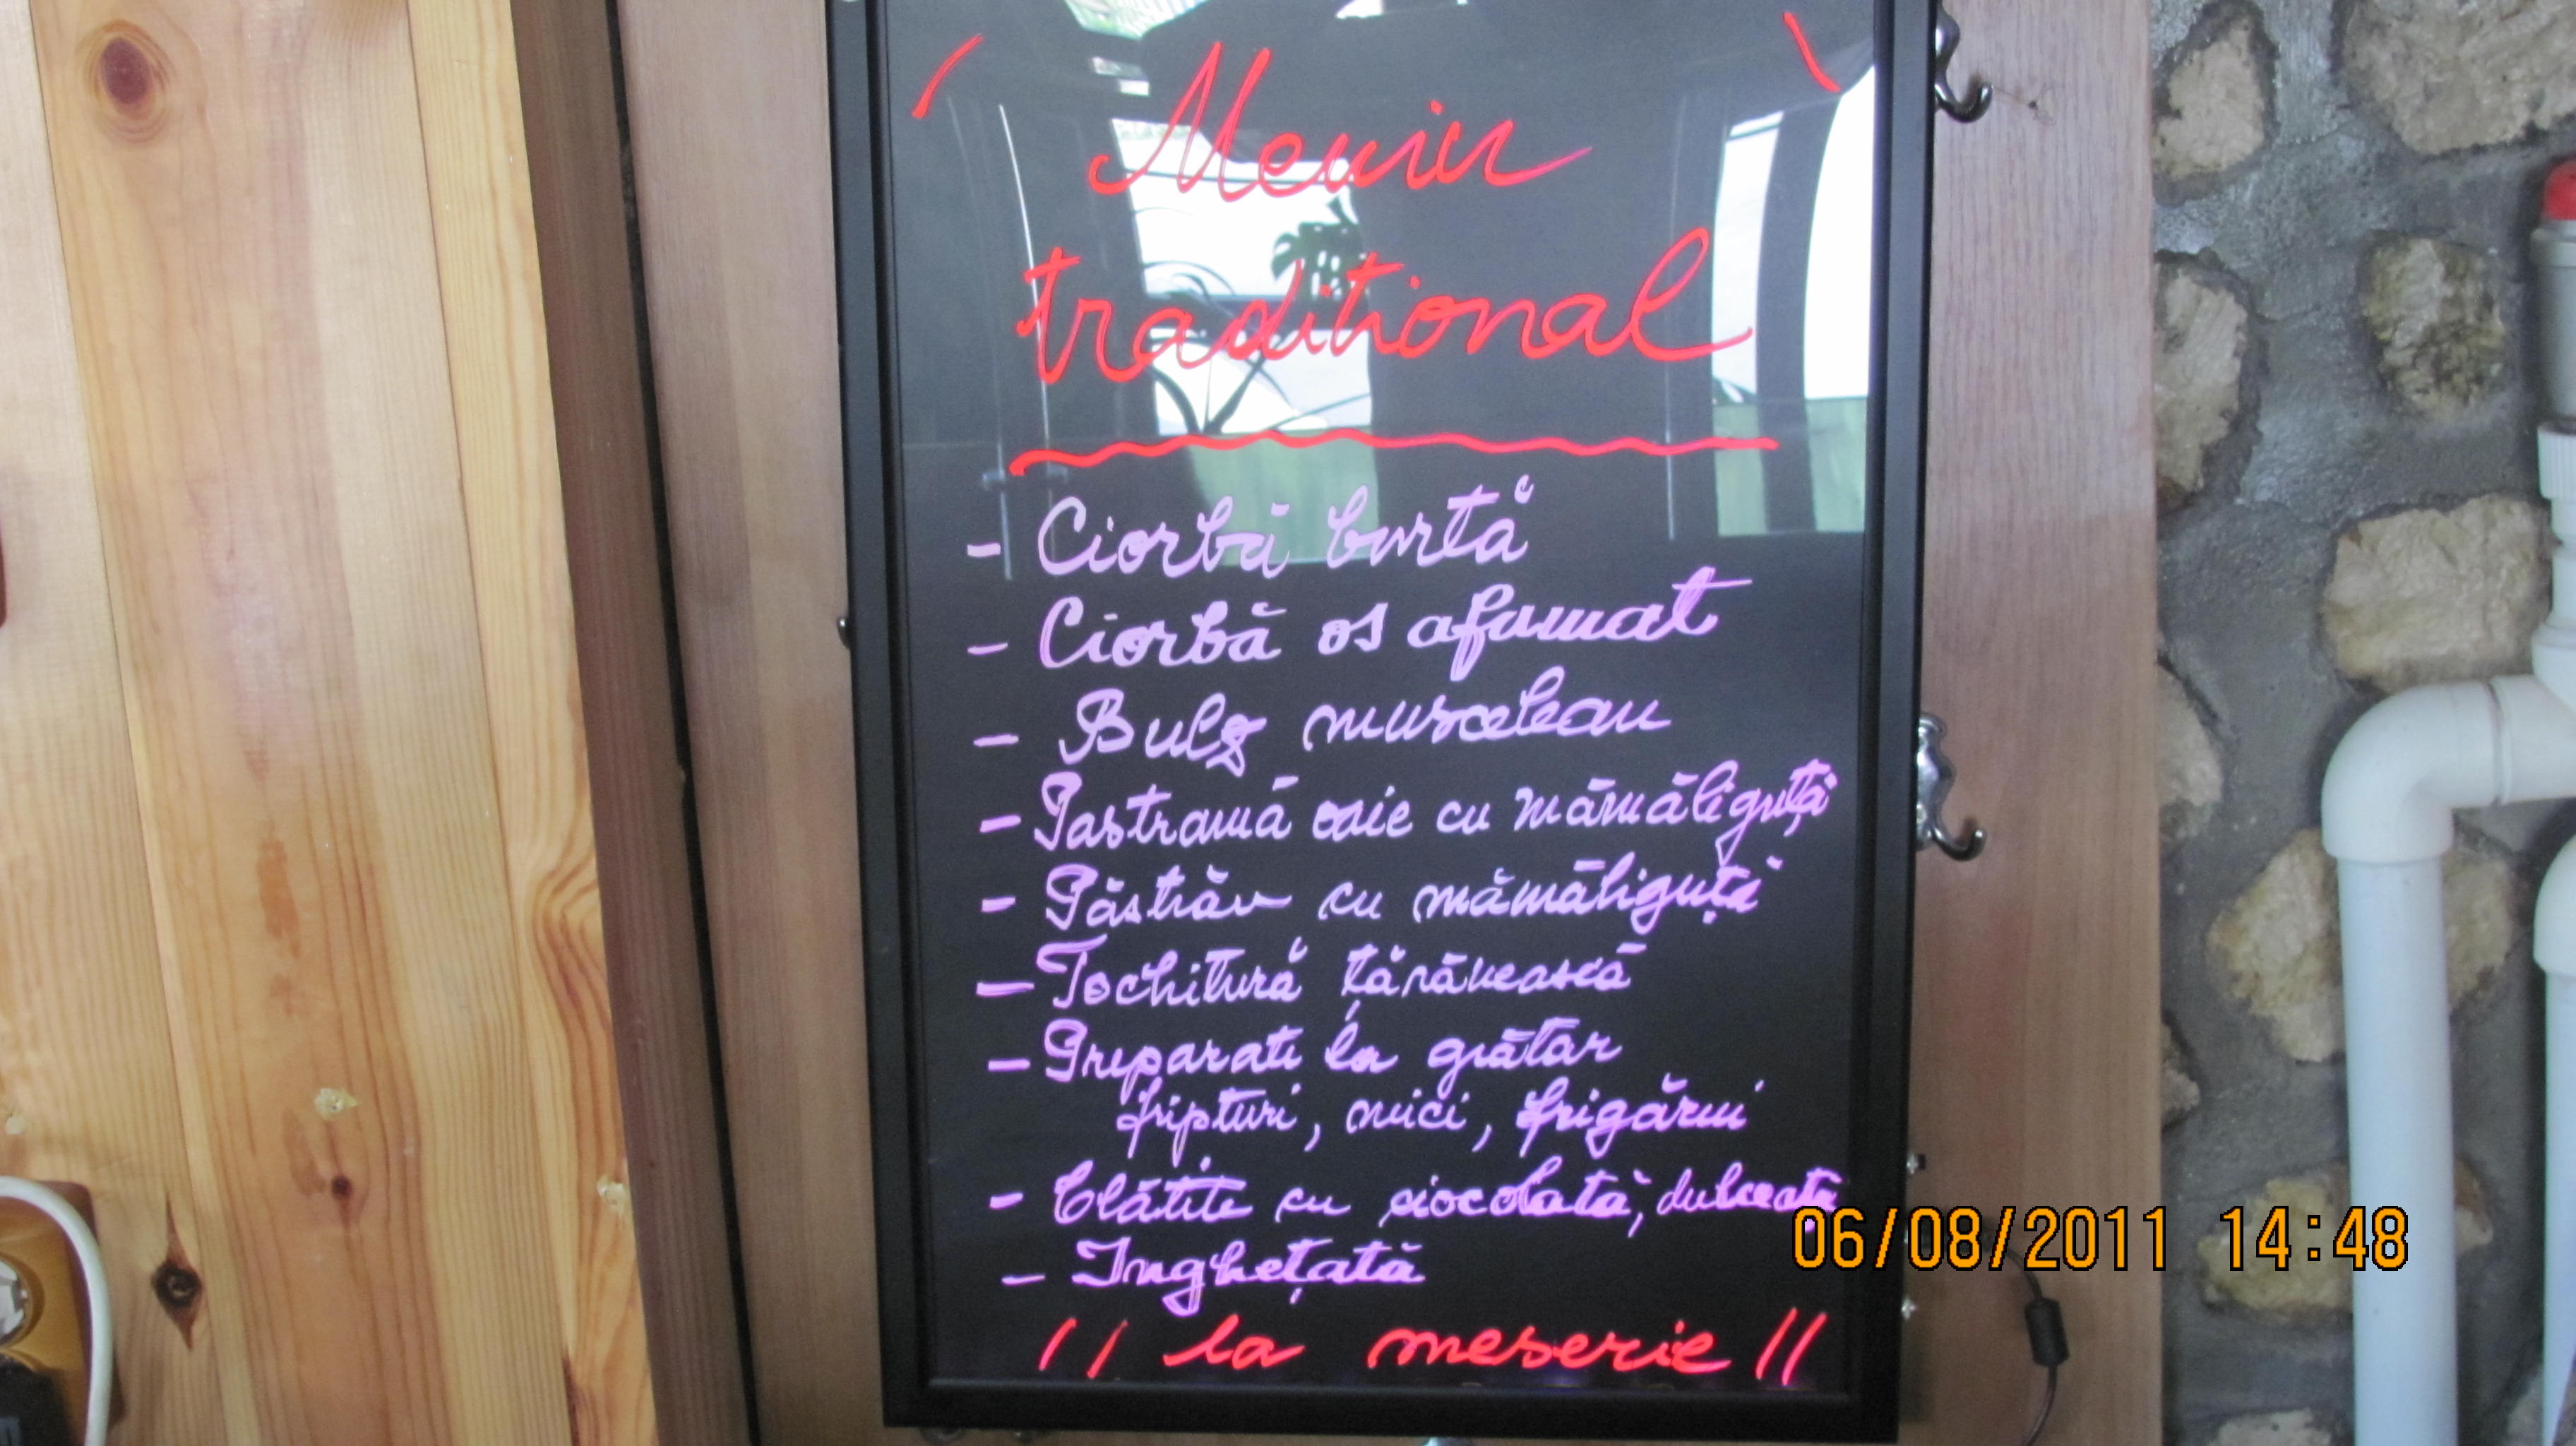 Meniu
traditional
- Ciorbă burtă
- Ciorbă os afumat
- Bulz muscelean
- Pastramă oaie cu mămăliguță
- Păstrăv cu mămăliguță
- Tochitură țărănească
- Preparate la grătar
fripturi, mici, frigărui
- Clătite cu ciocolată, dulceata
- Inghețată
" la meserie "
06/08/2011 14:48